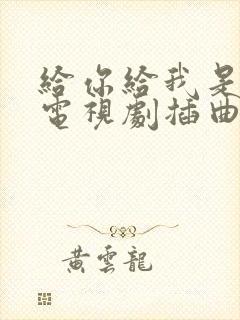 給你給我是
電視劇插曲
黃雲龍